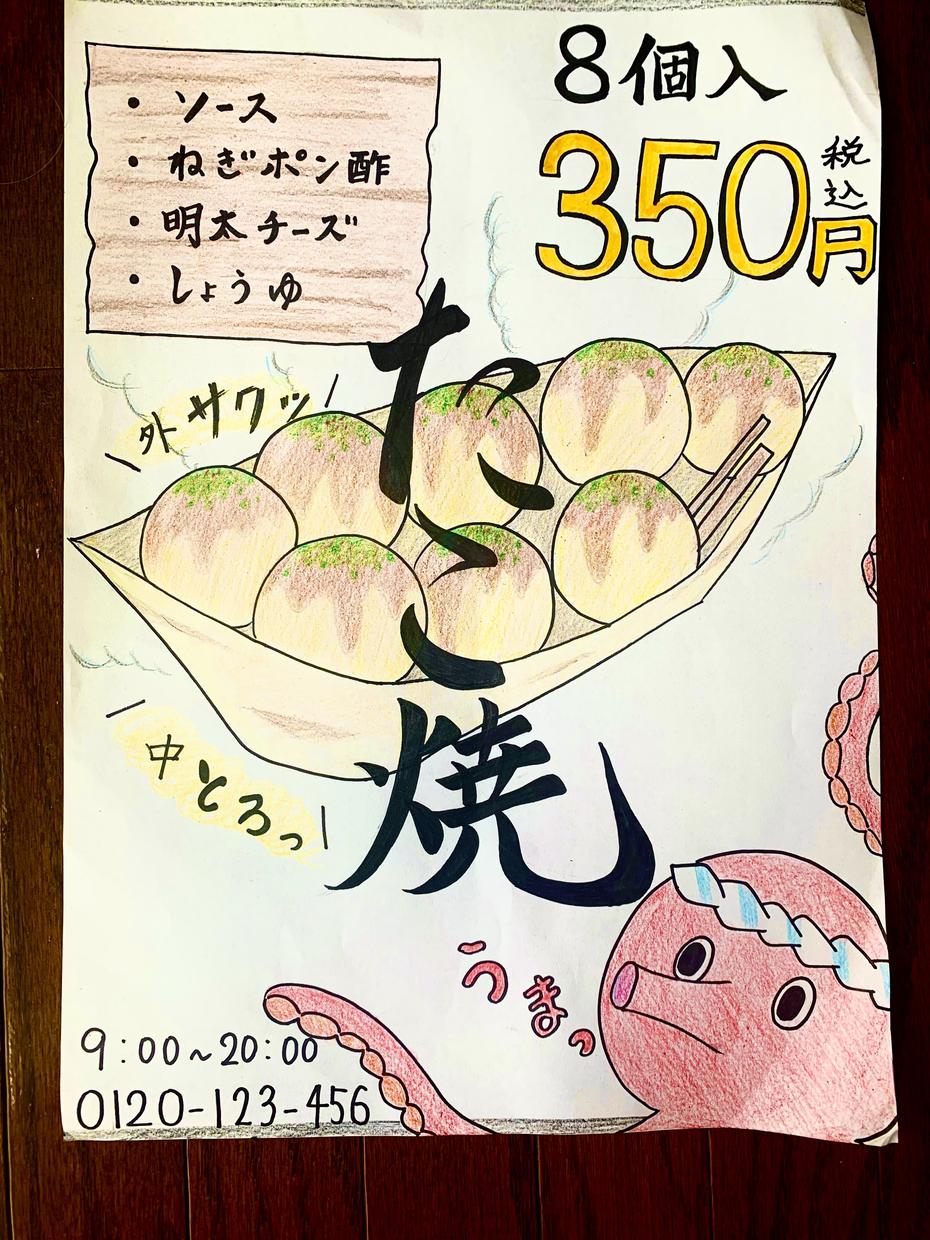 8個入
350円
税込
・ソース
・ねぎポン酢
・明太チーズ
・しょうゆ
たこ焼
外サクッ
中とろっ
うまっ
9:00~20:00
0120-123-456